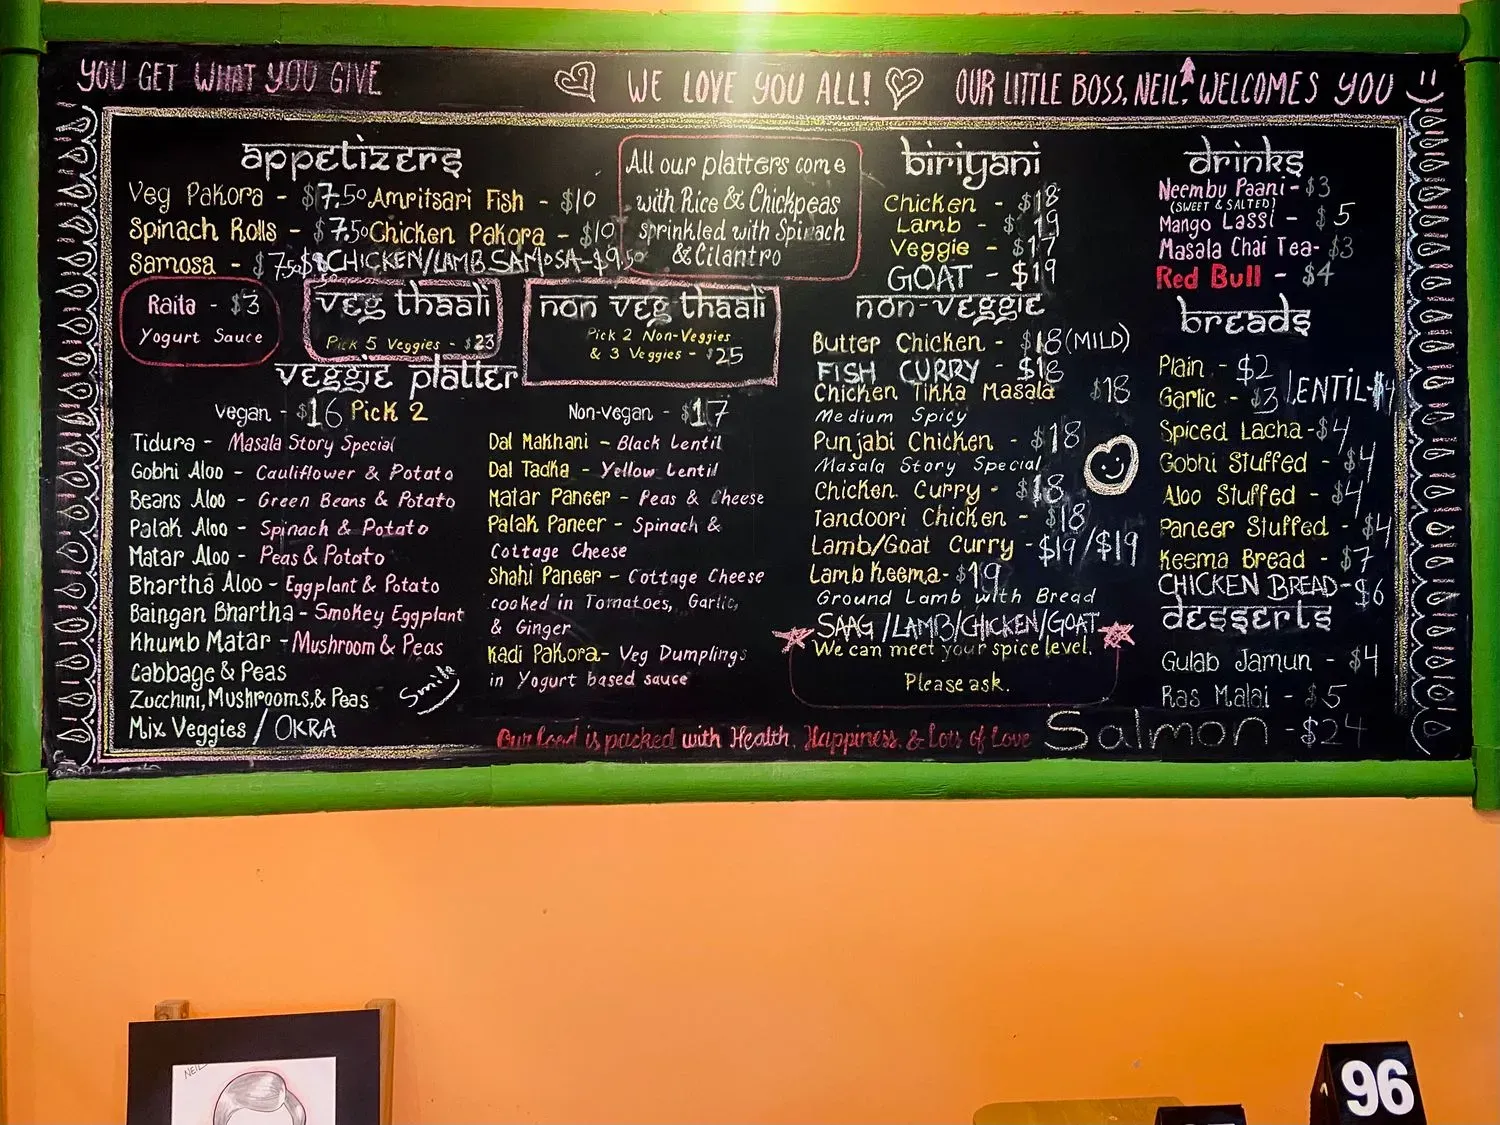 YOU GET WHAT YOU GIVE
WE LOVE YOU ALL!
OUR LITTLE BOSS, NEIL, WELCOMES YOU
appetizers
Veg Pakora - $7.50
Amritsari Fish - $10
Spinach Rolls - $7.50
Chicken Pakora - $10
Samosa - $7.50
CHICKEN/LAMB SAMOSA - $9.50
Raita - $3
Yogurt Sauce
veg thaali
Pick 5 Veggies - $23
non veg thaali
Pick 2 Non-Veggies
& 3 Veggies - $25
All our platters come
with Rice & Chickpeas
sprinkled with Spinach
& Cilantro
veggie platter
Vegan - $16 Pick 2
Tidura - Masala Story Special
Gobhi Aloo - Cauliflower & Potato
Beans Aloo - Green Beans & Potato
Palak Aloo - Spinach & Potato
Matar Aloo - Peas & Potato
Bhartha Aloo - Eggplant & Potato
Baingan Bhartha - Smokey Eggplant
Khumb Matar - Mushroom & Peas
Cabbage & Peas
Zucchini, Mushrooms, & Peas
Mix Veggies / OKRA
Smile
Non-vegan - $17
Dal Makhani - Black Lentil
Dal Tadka - Yellow Lentil
Matar Paneer - Peas & Cheese
Palak Paneer - Spinach &
Cottage Cheese
Shahi Paneer - Cottage Cheese
cooked in Tomatoes, Garlic,
& Ginger
Kadi Pakora - Veg Dumplings
in Yogurt based sauce
biriyani
Chicken - $18
Lamb - $19
Veggie - $17
GOAT - $19
non-veggie
Butter Chicken - $18 (MILD)
FISH CURRY - $18
Chicken Tikka Masala $18
Medium Spicy
Punjabi Chicken - $18
Masala Story Special
Chicken Curry - $18
Tandoori Chicken - $18
Lamb/Goat Curry - $19/$19
Lamb Keema - $19
Ground Lamb with Bread
SAAG/LAMB/CHICKEN/GOAT
We can meet your spice level.
Please ask.
drinks
Neembu Paani - $3
(SWEET & SALTED)
Mango Lassi - $5
Masala Chai Tea - $3
Red Bull - $4
breads
Plain - $2
Garlic - $3 LENTIL - $4
Spiced Lacha - $4
Gobhi Stuffed - $4
Aloo Stuffed - $4
Paneer Stuffed - $4
Keema Bread - $7
CHICKEN BREAD - $6
desserts
Gulab Jamun - $4
Ras Malai - $5
Salmon - $24
Our food is packed with Health, Happiness, & Lots of Love
NEIL
96